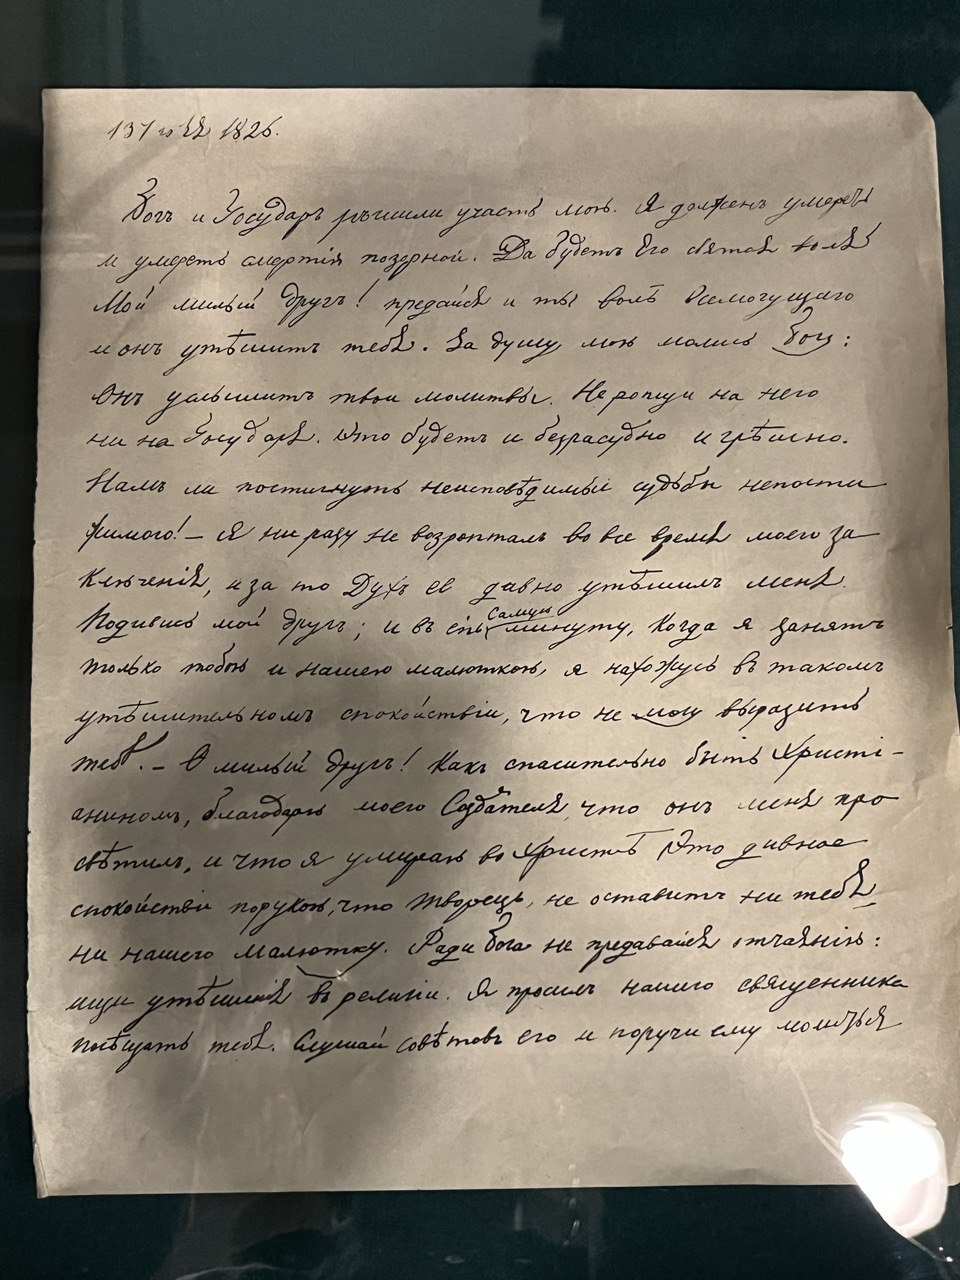 13 Іюля 1826.
Богъ и Государь рѣшили участь мою. Я долженъ умереть
и умереть смертію позорной. Да будетъ Его святая воля
Мой милый другъ! предайся и ты волѣ Всемогущаго
и онъ утѣшитъ тебя. За душу мою молись Богу:
Онъ услышитъ твои молитвы. Не ропщи на него
ни на Государя. Это будетъ и безразсудно и грѣшно.
Намъ ли постигнуть неисповѣдимыя судьбы непости
жимого! — Я ни разу не возропталъ во все время моего за
ключенія, и за то Духъ св давно утѣшилъ меня.
Подивись мой другъ; и въ сію самую минуту, когда я занятъ
только тобою и нашею малюткою, я нахожусь въ такомъ
утѣшительномъ спокойствіи, что не могу выразить
тебѣ. — О милый другъ! Какъ спасительно быть Христі-
аниномъ, благодарю моего Создателя, что онъ меня про
свѣтилъ, и что я умираю во Христѣ Это дивное
спокойствіе порукою, что Творецъ, не оставитъ ни тебя
ни нашего малютку. Ради Бога не предавайся отчаянію:
ищи утѣшенія въ религіи. Я просилъ нашего священника
посѣщать тебя. Слушай совѣтовъ его и поручи ему молиться